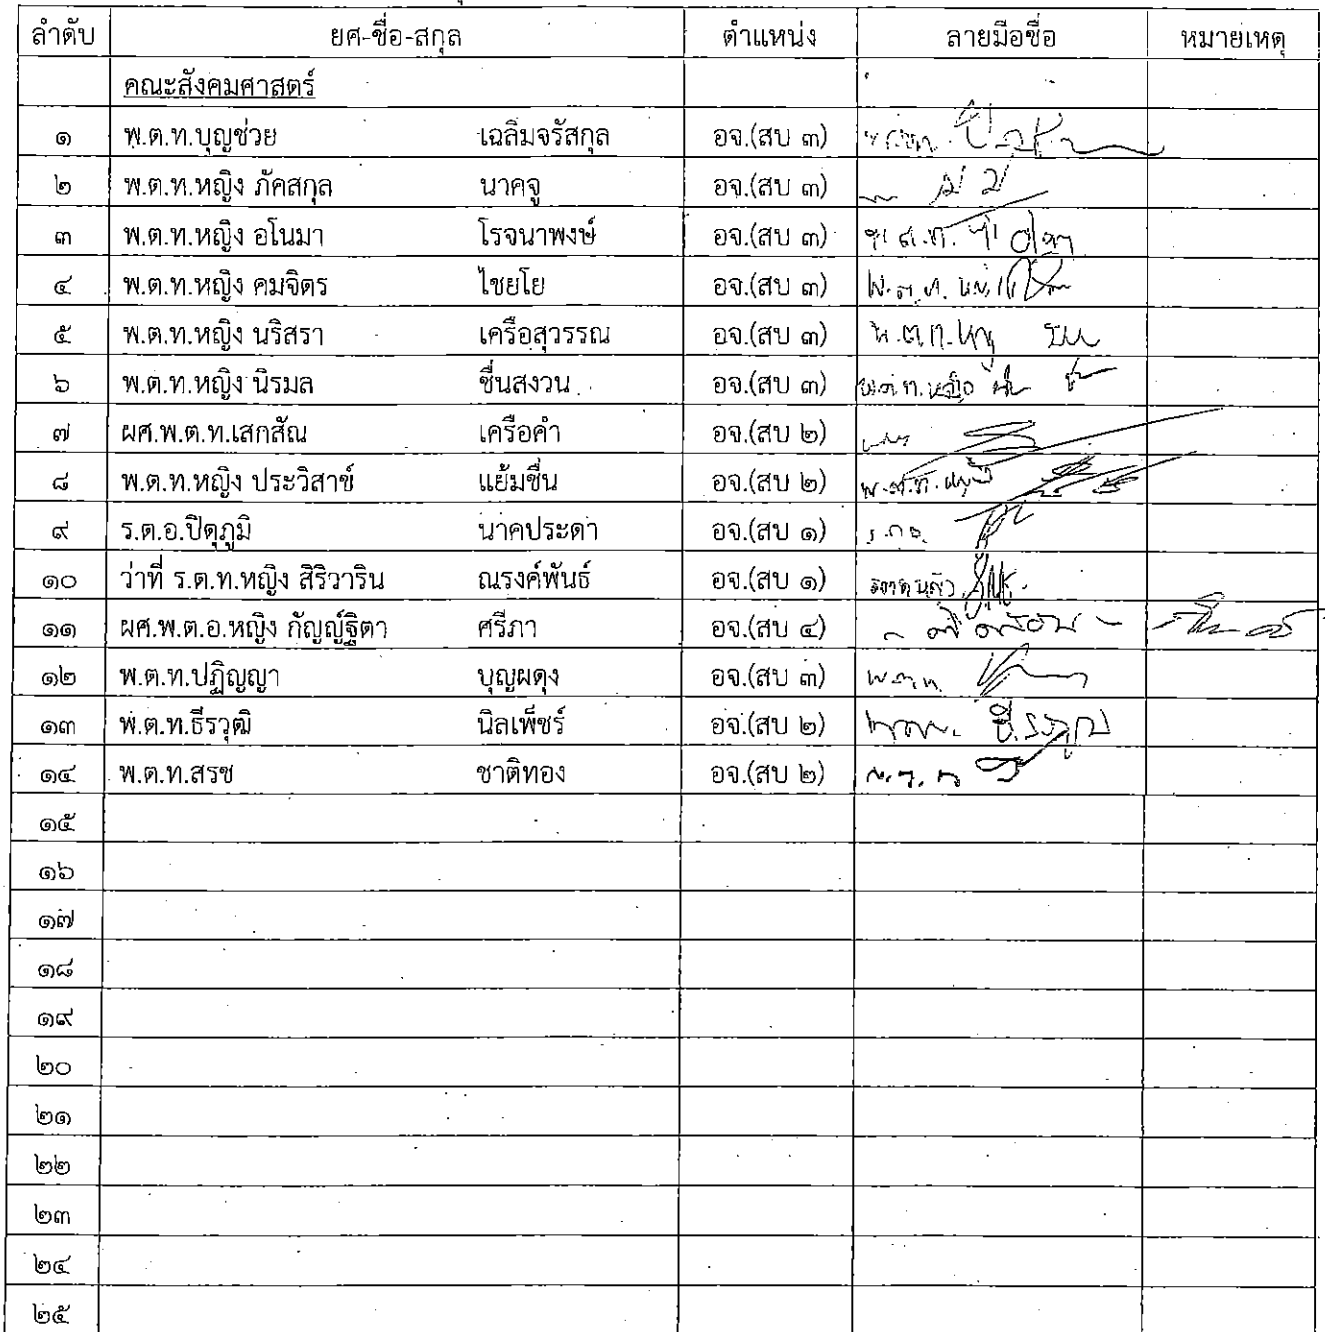 ลำดับ ยศ-ชื่อ-สกุล ตำแหน่ง ลายมือชื่อ หมายเหตุ
คณะสังคมศาสตร์
๑ พ.ต.ท.บุญช่วย เฉลิมจรัสกุล อจ.(สบ ๓)
๒ พ.ต.ท.หญิง ภัคสกุล นาคจู อจ.(สบ ๓)
๓ พ.ต.ท.หญิง อโนมา โรจนาพงษ์ อจ.(สบ ๓)
๔ พ.ต.ท.หญิง คมจิตร ไชยโย อจ.(สบ ๓)
๕ พ.ต.ท.หญิง นริสรา เครือสุวรรณ อจ.(สบ ๓)
๖ พ.ต.ท.หญิง นิรมล ชื่นสงวน อจ.(สบ ๓)
๗ ผศ.พ.ต.ท.เสกสัณ เครือคำ อจ.(สบ ๒)
๘ พ.ต.ท.หญิง ประวิสาข์ แย้มชื่น อจ.(สบ ๒)
๙ ร.ต.อ.ปิตุภูมิ นาคประดา อจ.(สบ ๑)
๑๐ ว่าที่ ร.ต.ท.หญิง สิริวาริน ณรงค์พันธ์ อจ.(สบ ๑)
๑๑ ผศ.พ.ต.อ.หญิง กัญญ์ฐิตา ศรีภา อจ.(สบ ๔)
๑๒ พ.ต.ท.ปฏิญญา บุญผดุง อจ.(สบ ๓)
๑๓ พ.ต.ท.ธีรวุฒิ นิลเพ็ชร์ อจ.(สบ ๒)
๑๔ พ.ต.ท.สรช ชาติทอง อจ.(สบ ๒)
๑๕
๑๖
๑๗
๑๘
๑๙
๒๐
๒๑
๒๒
๒๓
๒๔
๒๕